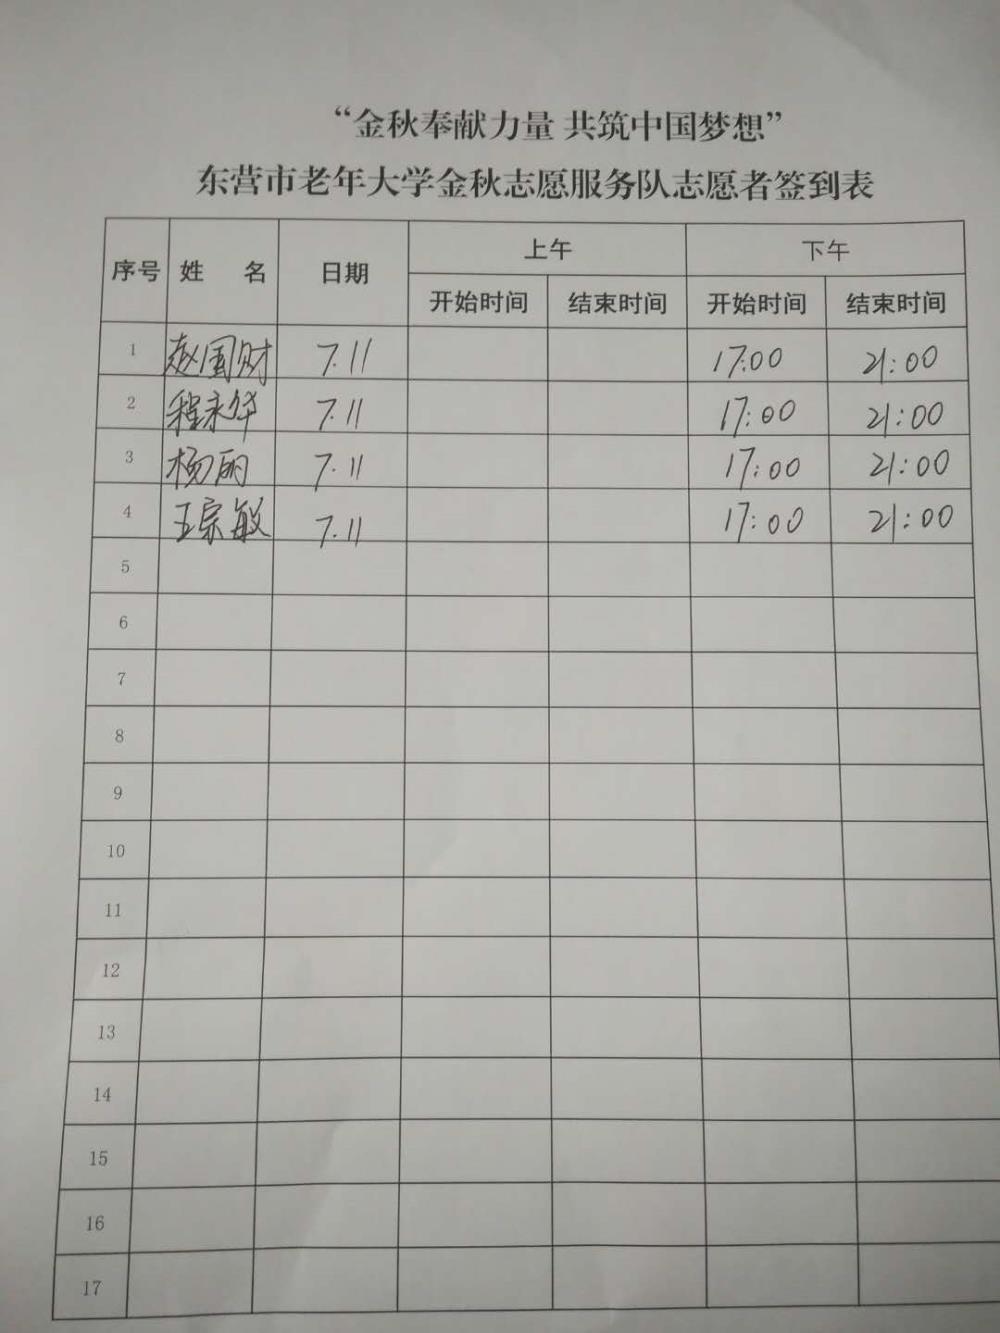 “金秋奉献力量 共筑中国梦想”
东营市老年大学金秋志愿服务队志愿者签到表
序号 姓 名 日期 上午 下午
开始时间 结束时间 开始时间 结束时间
1 赵国财 7.11 17:00 21:00
2 程永华 7.11 17:00 21:00
3 杨丽 7.11 17:00 21:00
4 王宗敏 7.11 17:00 21:00
5
6
7
8
9
10
11
12
13
14
15
16
17